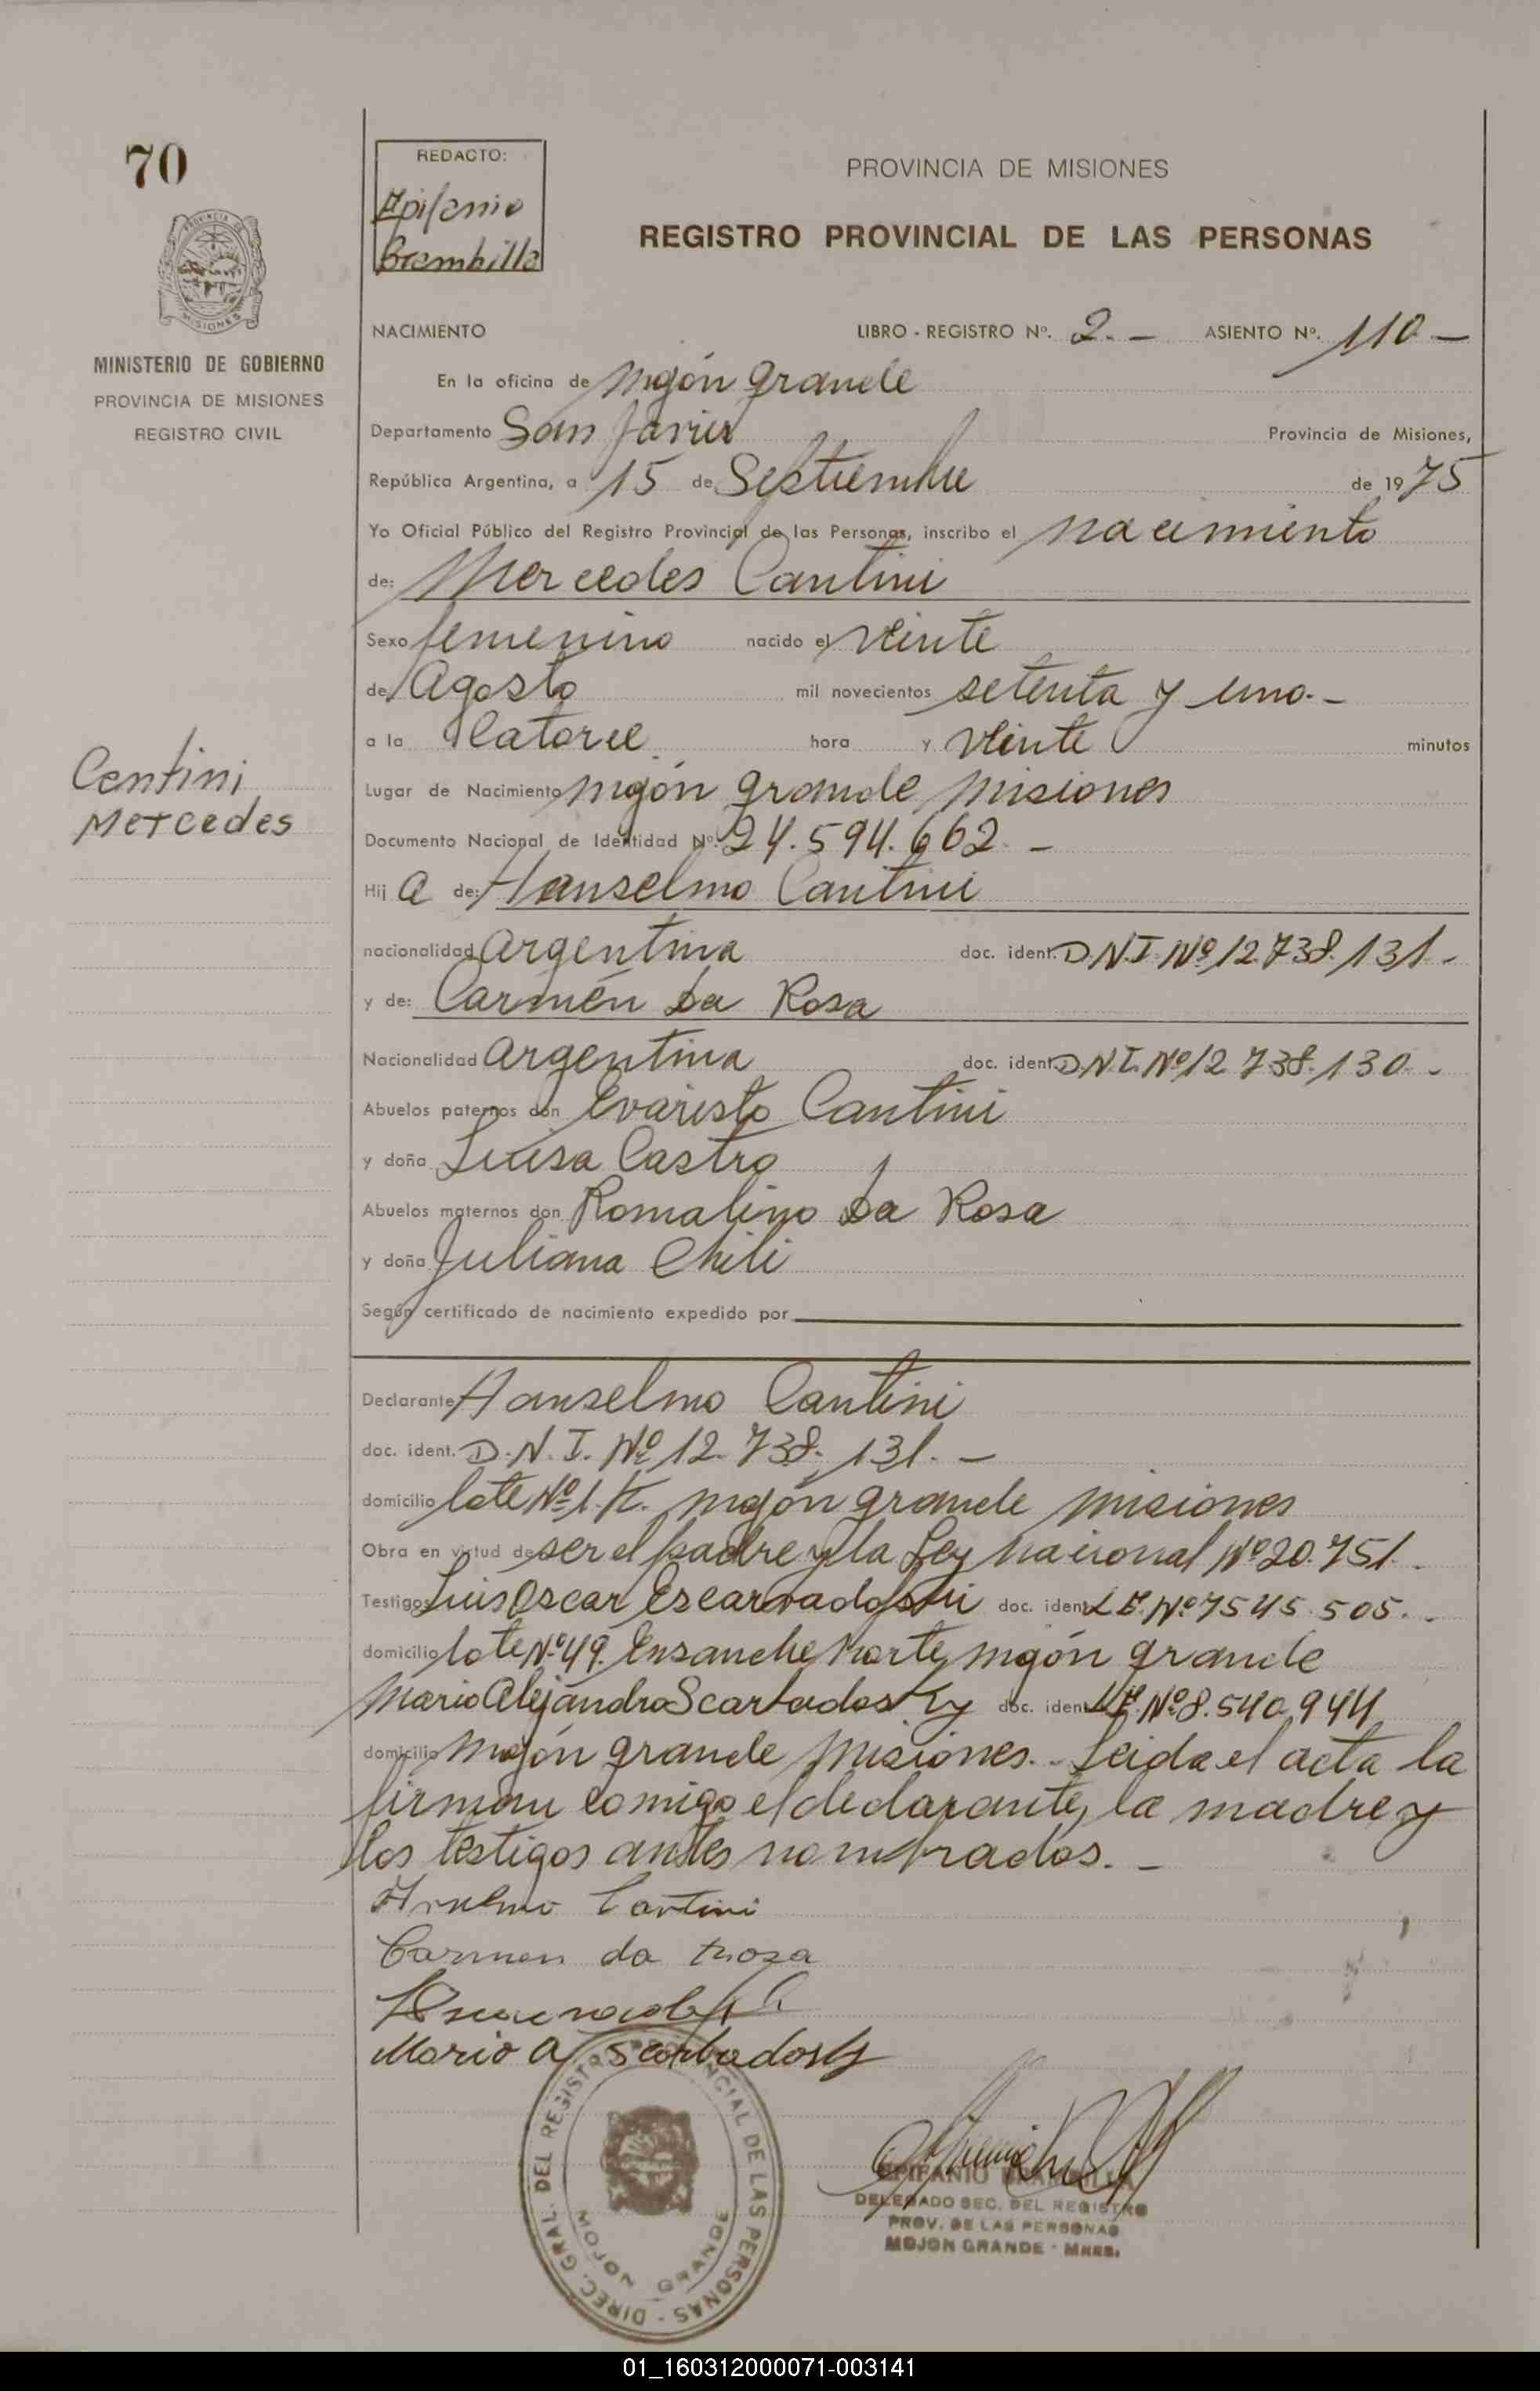 70
REDACTO:
Epifanio
Brambilla
PROVINCIA DE MISIONES
REGISTRO PROVINCIAL DE LAS PERSONAS
PROVINCIA DE
MISIONES
MINISTERIO DE GOBIERNO
PROVINCIA DE MISIONES
REGISTRO CIVIL
NACIMIENTO LIBRO - REGISTRO Nº. 2.- ASIENTO Nº. 110-
En la oficina de Mojón grande
Departamento San Javier Provincia de Misiones,
República Argentina, a 15 de Septiembre de 1975
Yo Oficial Público del Registro Provincial de las Personas, inscribo el nacimiento
de: Mercedes Cantini
Sexo femenino nacido el veinte
de Agosto mil novecientos setenta y uno.-
a la Catorce hora y veinte minutos
Centini
Mercedes
Lugar de Nacimiento Mojón grande Misiones
Documento Nacional de Identidad Nº. 24.594.662.-
Hij a de: Hanselmo Cantini
nacionalidad argentina doc. ident. D.N.I. Nº 12.738.131.-
y de: Carmén Da Rosa
Nacionalidad argentina doc. ident. D.N.I. Nº 12.738.130.-
Abuelos paternos don Evaristo Cantini
y doña Luisa Castro
Abuelos maternos don Romalino Da Rosa
y doña Juliana Chili
Según certificado de nacimiento expedido por
Declarante Hanselmo Cantini
doc. ident. D.N.I. Nº 12.738.131.-
domicilio lote Nº 1. Mojón grande Misiones
Obra en virtud de ser el padre y la Ley nacional Nº 20.751.
Testigos Luis Oscar doc. ident. L.E. Nº 7545.505.-
domicilio lote Nº 49. Ensanche Norte, Mojón grande
Mario Alejandro Scarbadosky doc. ident. L.E. Nº 8.540.944
domicilio Mojón grande Misiones.- Leida el acta la
firman comigo el declarante, la madre y
los testigos antes nombrados.-
Anselmo Cantini
Carmen da rosa
Mario A Scarbadosky
DIREC. GRAL. DEL REGISTRO PROVINCIAL DE LAS PERSONAS -
MOJON GRANDE
EPIFANIO BRAMBILLA
DELEGADO SEC. DEL REGISTRO
PROV. DE LAS PERSONAS
MOJON GRANDE - MNES.
01_160312000071-003141